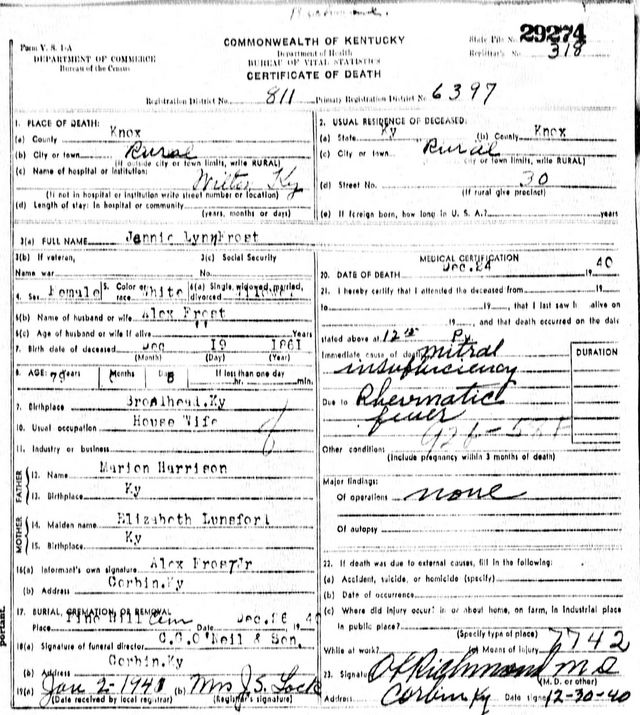 Form V. S. 1-A
DEPARTMENT OF COMMERCE
Bureau of the Census
COMMONWEALTH OF KENTUCKY
Department of Health
BUREAU OF VITAL STATISTICS
CERTIFICATE OF DEATH
State File No. 29274
Registrar's No. 318
Registration District No. 811 Primary Registration District No. 6397
1. PLACE OF DEATH:
(a) County Knox
(b) City or town Rural
(If outside city or town limits, write RURAL)
(c) Name of hospital or institution:
Wilton Ky
(If not in hospital or institution write street number or location)
(d) Length of stay: In hospital or community
(years, months or days)
2. USUAL RESIDENCE OF DECEASED:
(a) State Ky (b) County Knox
(c) City or town Rural
city or town limits, write RURAL)
(d) Street No. 30
(If rural give precinct)
(e) If foreign born, how long in U. S. A.? years
3(a) FULL NAME Jennie Lynn Frost
3(b) If veteran, 3(c) Social Security
Name war No.
4. Sex Female 5. Color or race White 6(a) Single, widowed, married, divorced
6(b) Name of husband or wife Alex Frost
6(c) Age of husband or wife if alive Years
7. Birth date of deceased Dec 19 1861
(Month) (Day) (Year)
8. AGE: Years Days If less than one day
hr. min.
9. Birthplace Brodhead, Ky
10. Usual occupation House Wife
11. Industry or business
FATHER
12. Name Marion Harrison
13. Birthplace Ky
MOTHER
14. Maiden name Elizabeth Lunsford
15. Birthplace Ky
16(a) Informant's own signature Alex Frost Jr
(b) Address Corbin, Ky
17. BURIAL, CREMATION OR REMOVAL
Place Pine Hill Cem Date Dec. 26 1940
18(a) Signature of funeral director O'Neil & Son.
(b) Address Corbin, Ky
19(a) Jan 2-1941 (b) Mrs J. S. Lock
(Date received by local registrar) (Registrar's signature)
MEDICAL CERTIFICATION
20. DATE OF DEATH Dec. 24 19 40
21. I hereby certify that I attended the deceased from 19
to 19, that I last saw h alive on
19 and that death occurred on the date
stated above at 12
Immediate cause of death mitral
insufficiency
Due to Rheumatic
fever
DURATION
Other conditions
(Include pregnancy within 3 months of death)
Major findings:
Of operations none
Of autopsy
22. If death was due to external causes, fill in the following:
(a) Accident, suicide, or homicide (specify)
(b) Date of occurrence
(c) Where did injury occur? in or about home, on farm, in industrial place
in public place?
(Specify type of place)
While at work? Means of injury 7742
23. Signature Richmond M D
(M. D. or other)
Address Corbin Ky Date signed 12-30-40
portant.